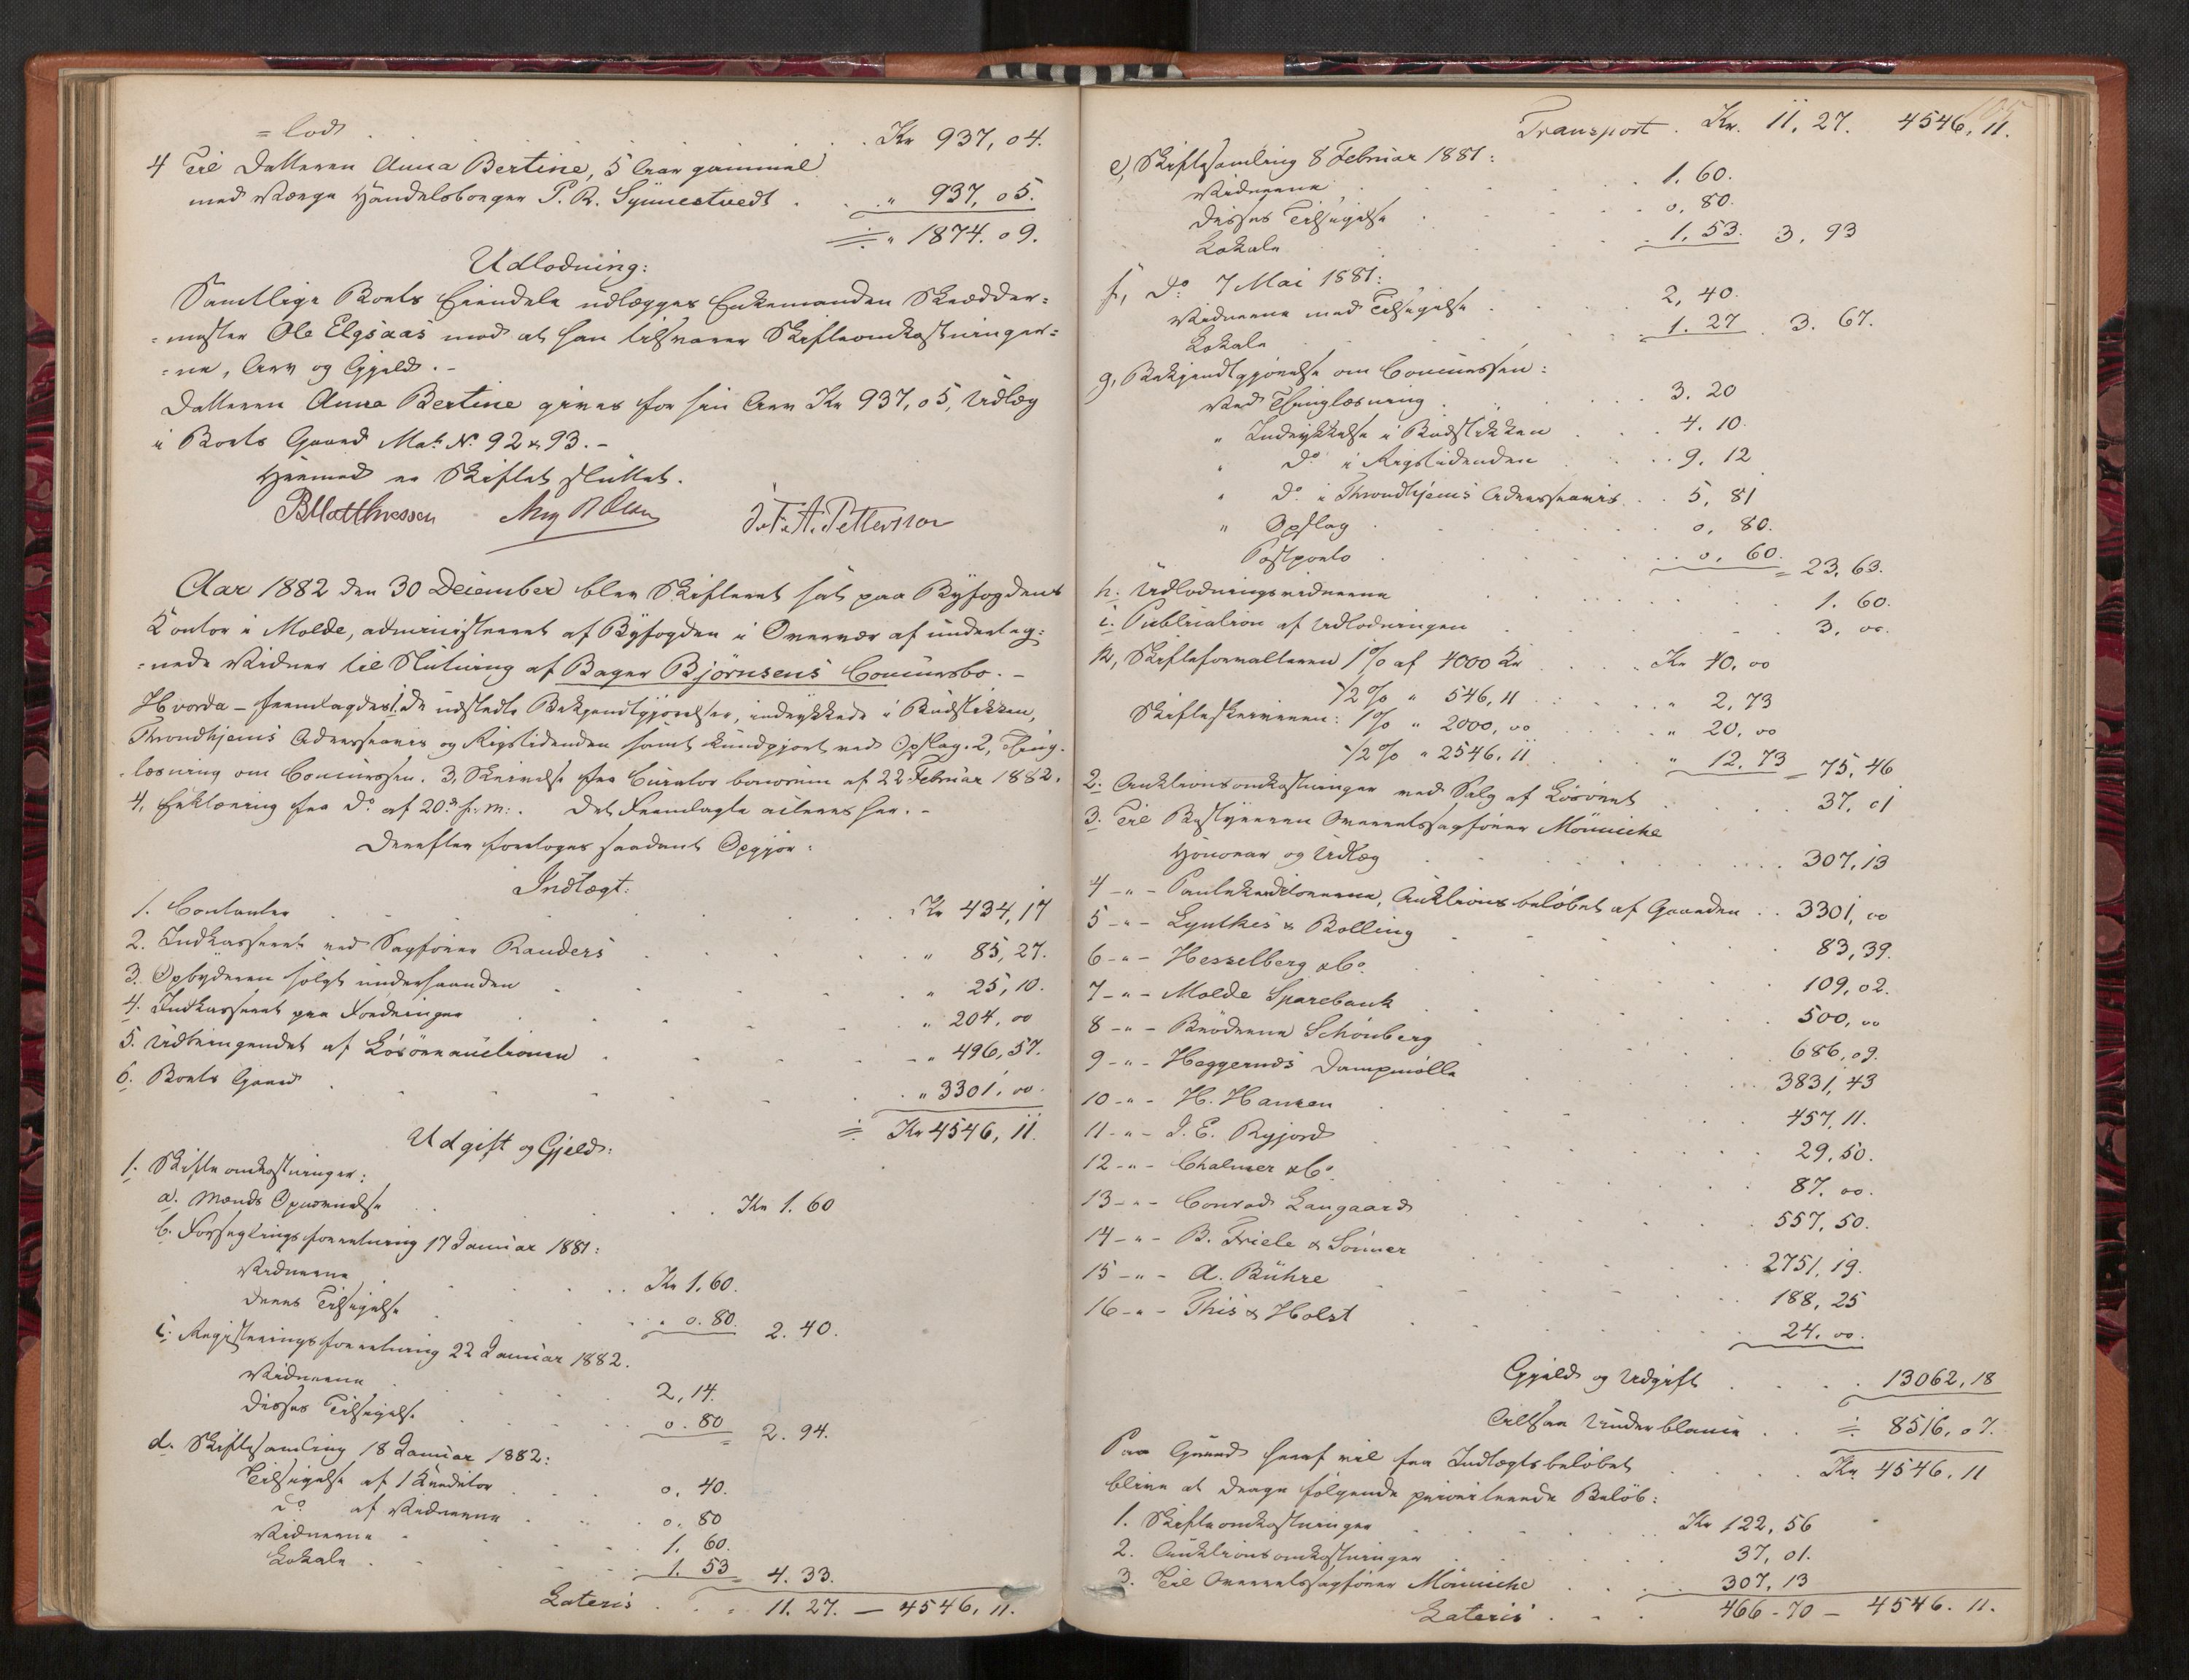 = lod . . . Kr 937,04.
4 Til Datteren Anna Bertine, 5 Aar gammel
med Værge Handelsborger P. R. Synnestvedt . . . " 937,05.
" 1874.09.
Udlodning:
Samtlige Boets Eiendele udlægges Enkemanden Skrædder=
=mester Ole Elgsaas mod at han tilsvarer Skifteomkostninger=
=ne, Arv og Gjeld. –
Datteren Anna Bertine gives for sin Arv Kr 937,05, Udlæg
i Boets Gaard Mat. N. 92 & 93. –
Hermed er Skiftet sluttet.
B Matthiessen Aug B Olsen J. F. A. Pettersson
Aar 1882 den 30 December blev Skifteret sat paa Byfogdens
Kontor i Molde, administreret af Byfogden i Overvær af underteg=
=nede Vidner til Slutning af Bager Björnsens Concursbo. –
Hvorda – fremlagdes 1. De udstedte Bekjendtgjørelser, indrykkede i Budstikken,
Throndhjems Adresseavis og Rigstidenden samt kundgjort ved Opslag. 2, Thing=
=læsning om Concursen. 3, Skrivelse fra Curator bonorum af 22 Februar 1882.
4, Erklæring fra Do af 20de f. M. Det Fremlagte acteres her. –
Derefter foretoges saadant Opgjør:
Indtægt:
1. Contanter . . . Kr 434,17
2. Indkasseret ved Sagfører Randers . . . " 85,27.
3. Opbyderen solgt underhaanden . . . " 25,10.
4. Indkasseret paa Fordringer . . . " 204,00
5. Udbringendet af Løsöreauctionen . . . " 496,57.
6. Boets Gaard . . . " 3301,00
Kr 4546,11.
Udgift og Gjeld:
1. Skifteomkostninger:
a. Mænds Opnævnelse . . . Kr 1.60
b. Forseglingsforretning 17 Januar 1881:
Vidnerne . . . Kr 1.60.
Deres Tilsigelse . . . " 0.80. 2.40.
c. Registreringsforretning 22 Januar 1882.
Vidnerne . . . 2,14.
Disses Tilsigelse . . . 0.80 2.94.
d. Skiftesamling 18 Januar 1882:
Tilsigelse af 1 Kreditor . . . 0.40.
Do af Vidnerne . . . 0.80
Vidnerne . . . 1.60.
Lokale . . . 1.53 4.33.
Lateris . . . 11.27. — 4546,11.
105
Transport . Kr. 11,27. 4546,11.
e, Skiftesamling 8 Februar 1881:
Vidnerne . . . 1.60.
Disses Tilsigelse . . . 0,80.
Lokale . . . 1,53. 3,93
f, Do 7 Mai 1881:
Vidnerne med Tilsigelse . . . 2,40.
Lokale . . . 1.27 3.67.
g, Bekjendtgjörelse om Concursen:
Ved Thinglæsning . . . 3.20
" Indrykkelse i Budstikken . . . 4.10.
" Do i Rigstidenden . . . 9.12
" Do i Throndhjems Adresseavis . . 5,81
" Opslag . . . 0,80.
Postporto . . . 0,60. = 23,63.
h. Udlodningsvidnerne . . . 1.60.
i. Publication af Udlodningen . . . 3,00.
k, Skifteforvalteren 1% af 4000 Kr . . . Kr 40,00
1/2% " 546,11 . . . " 2,73
Skifteskriveren: 1% " 2000,00 . . . " 20,00
1/2% " 2546,11 . . . " 12,73 = 75,46
2. Auktionsomkostninger ved Salg af Løsöret . . . 37,01
3. Til Bestyreren Overretssagförer Mönniche
Honorar og Udlæg . . . 307,13
4 –"– Pantekreditorerne, Auktionsbelöbet af Gaarden . . 3301,00
5 –"– Lynthes & Bolling . . . 83,39.
6 –"– Hesselberg & Co. . . . 109,02.
7 –"– Molde Sparebank . . . 500,00
8 –"– Brödrene Schönberg . . . 686,09.
9 –"– Heggernds Dampmölle . . . 3831,43
10 –"– H. Hansen . . . 457,11.
11 –"– J. E. Ryjord . . . 29,50.
12 –"– Chalmer & Co. . . . 87.00.
13 –"– Conrad Langaard . . . 557,50.
14 –"– B. Friele & Sönner . . . 2751,19.
15 –"– A. Bühre . . . 188,25
16 –"– This & Holst . . . 24.00.
Gjeld og Udgift . . . 13062,18
Altsaa Underblance . . . 8516,07.
Paa Grund heraf vil fra Indtægtsbelöbet . . . Kr 4546.11
blive at drage fölgende prioriterede Belöb:
1. Skifteomkostninger . . . Kr 122,56
2. Auktionsomkostninger . . . 37,01.
3. Til Overretssagförer Mönniche . . . 307,13
Lateris . . . 466-70 – 4546.11.